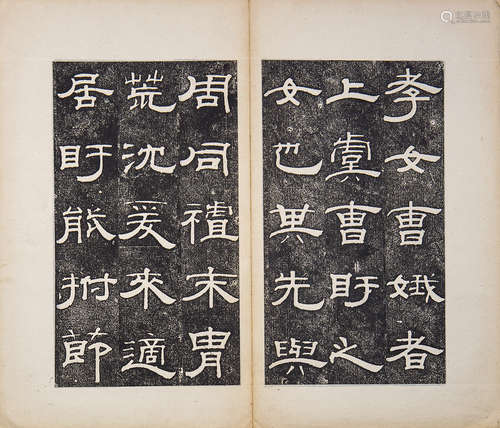 孝女曹娥者
上虞曹盱之
女也其先與
周同末冑
荒沈爰來適
居盱能拊節